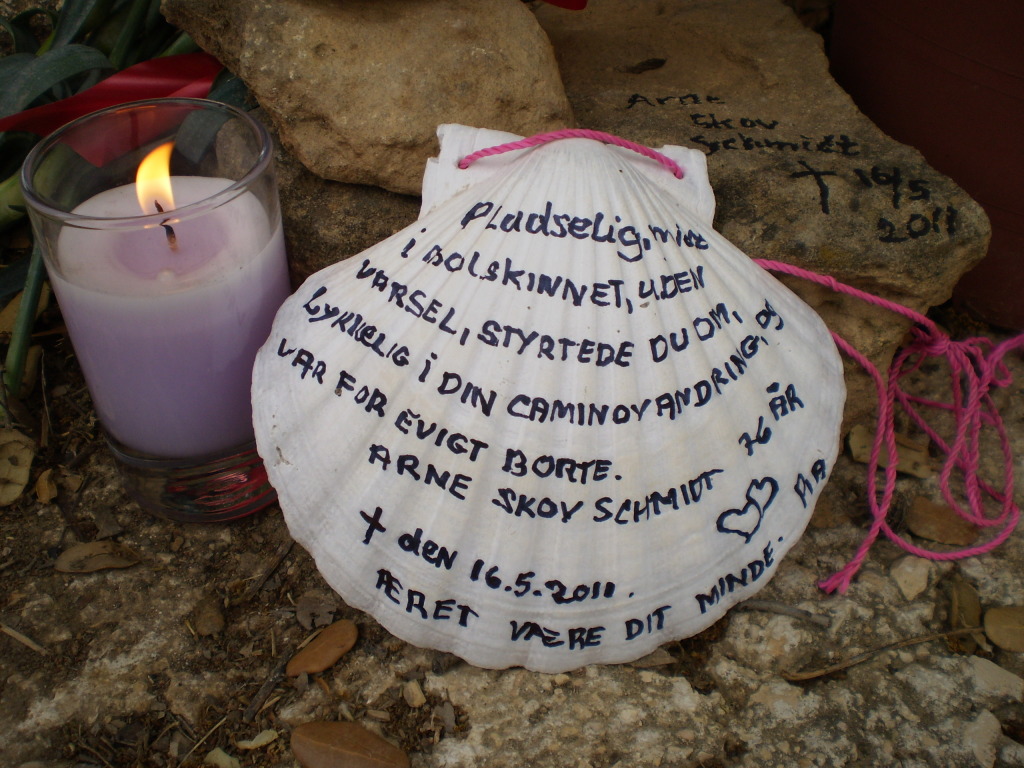 Arne
Skov
Schmidt
† 16/5
2011
PLUDSELIG, midt
i SOLSKINNET, UDEN
VARSEL, STYRTEDE DU OM,
LYKKELIG i DIN CAMINOVANDRING, og
VAR FOR EVIGT BORTE.
ARNE SKOV SCHMIDT 76 ÅR
† den 16.5.2011.
ÆRET VÆRE DIT MINDE. PIA